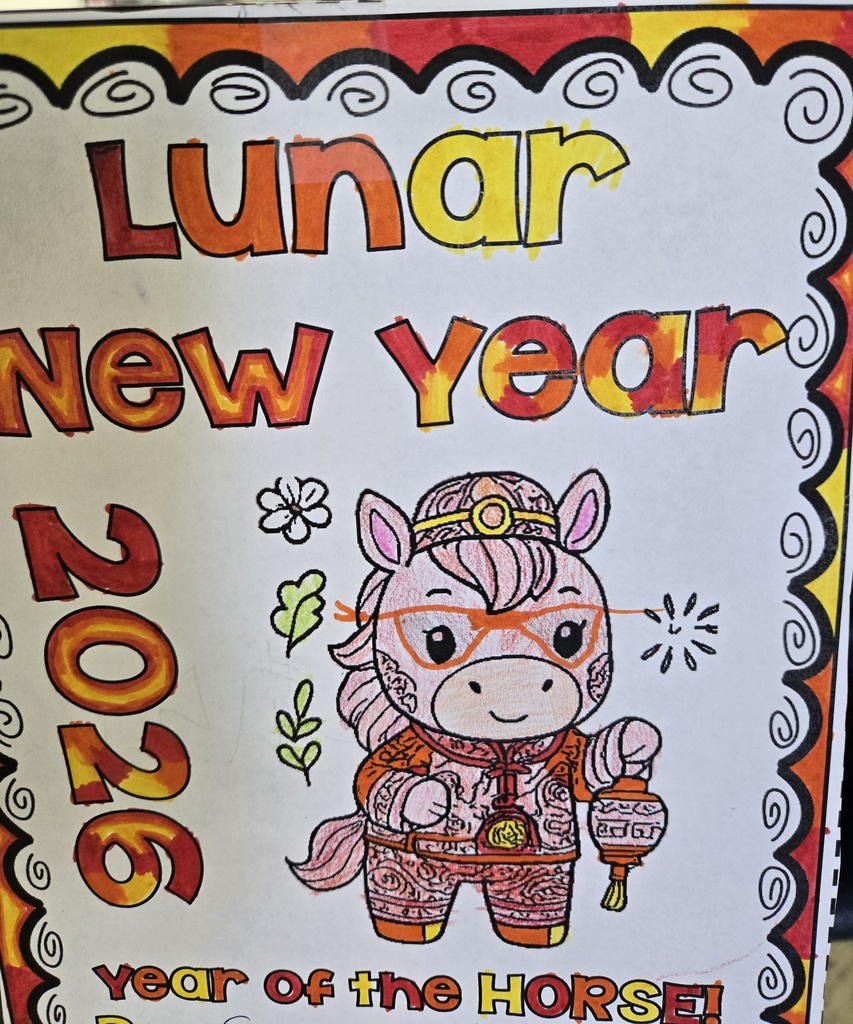 Lunar
New Year
2026
Year of the HORSE!